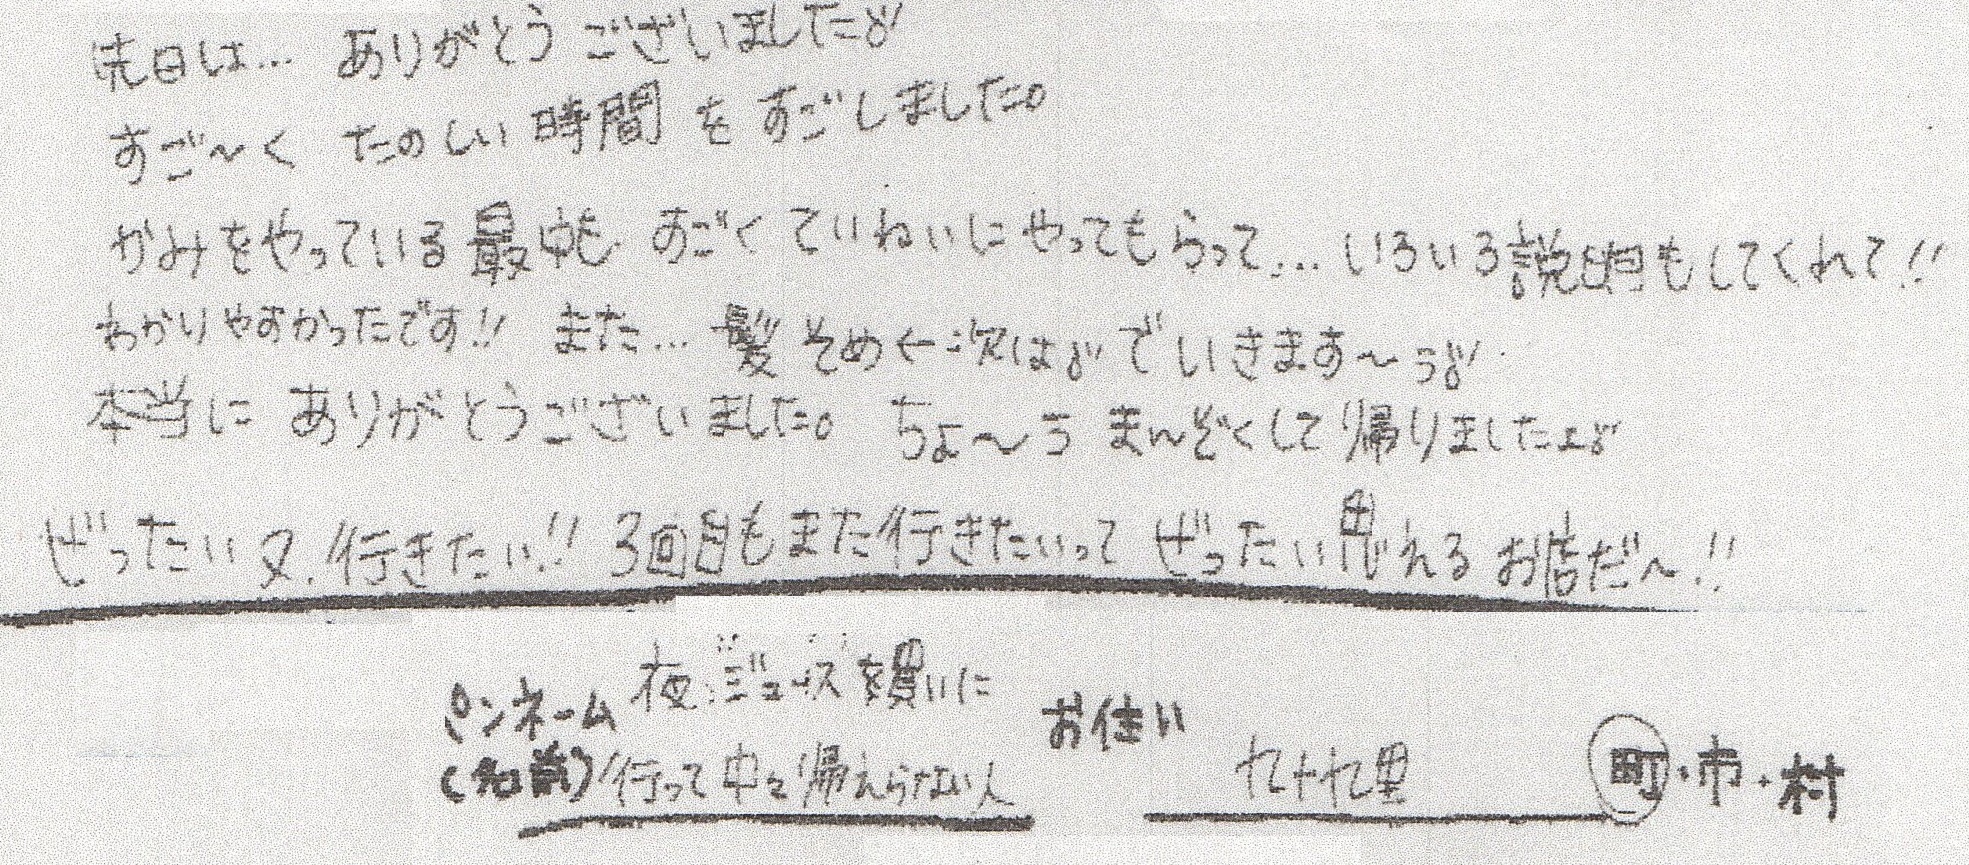 先日は… ありがとうございました♡
すご〜く たのしい 時間 を すごしました。
かみをやっている最中も すごくていねいにやってもらって… いろいろ説明もしてくれて!!
わかりやすかったです!! また… 髪そめ←次は♡ でいきます〜う♡
本当に ありがとうございました。 ちょ〜う まんぞくして帰りましたよ♡
ぜったい又、行きたい!! 3回目もまた行きたいって ぜったい思えるお店だ〜!!
ペンネーム 夜ジュースを買いに
(名前) 行って中々帰えらない人
お住い 九十九里 町・市・村